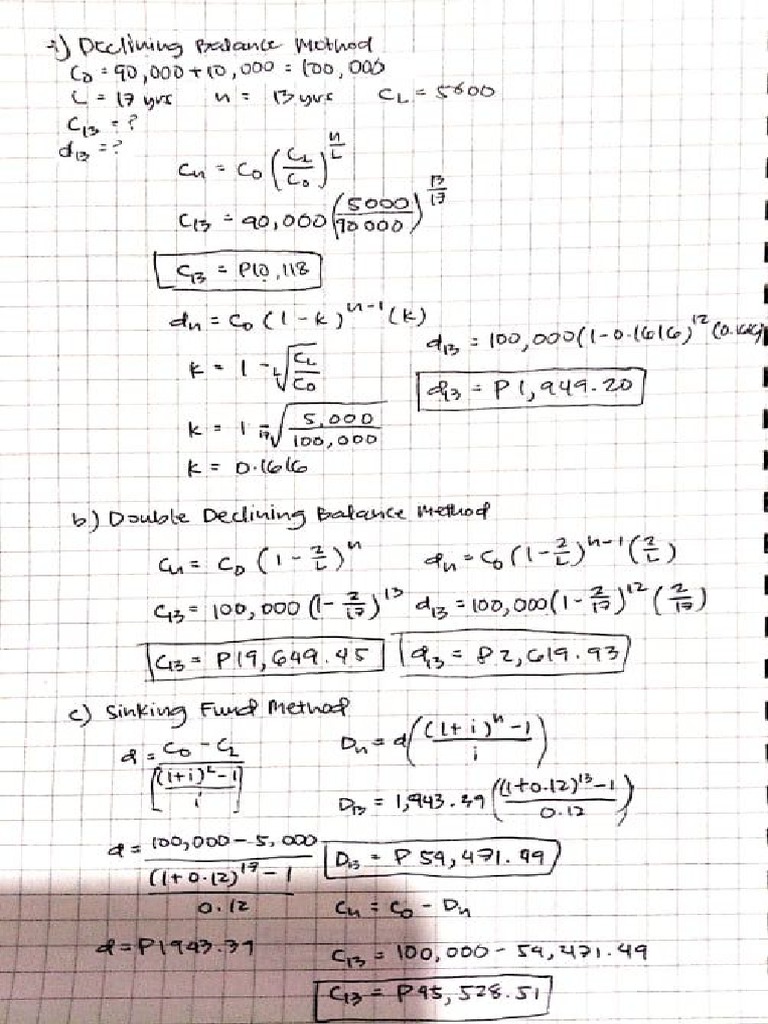 a) Declining Balance Method
C0 = 90,000 + 10,000 = 100,000
L = 17 yrs n = 13 yrs CL = 5000
C13 = ?
d13 = ?
Cn = C0 (CL/C0)^(n/L)
C13 = 90,000 (5000/90000)^(13/17)
C13 = P10,118
dn = C0 (1 - k)^(n-1) (k)
k = 1 - L√(CL/C0)
k = 1 - 17√(5,000/100,000)
k = 0.1616
d13 = 100,000 (1 - 0.1616)^12 (0.1616)
d13 = P1,949.20
b) Double Declining Balance Method
Cn = C0 (1 - 2/L)^n dn = C0 (1 - 2/L)^(n-1) (2/L)
C13 = 100,000 (1 - 2/17)^13 d13 = 100,000 (1 - 2/17)^12 (2/17)
C13 = P19,649.45 d13 = P2,619.93
c) Sinking Fund Method
d = C0 - CL / [(1+i)^L - 1 / i]
d = 100,000 - 5,000 / (1+0.12)^17 - 1 / 0.12
d = P1943.39
Dn = d ((1+i)^n - 1 / i)
D13 = 1,943.39 ((1+0.12)^13 - 1 / 0.12)
D13 = P 54,471.49
Cn = C0 - Dn
C13 = 100,000 - 54,471.49
C13 = P45,528.51